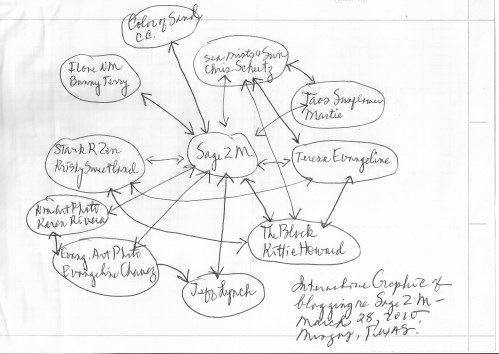 Color of Sand
C.C.
Sea, Mist & Sun
Chris Schutz
I Love NM
Bunny Terry
Taos Sunflower
Martie
Sage 2 M
Stark R Zen
Kristy Sweetland
Teresa Evangeline
NM Art Photo
Karen Rivera
The Block
Kittie Howard
Evang. Art Photo
Evangeline Chavez
Jeff Lynch
Interactive Graphic of
blogging re Sage 2 M –
March 28, 2010
Mingus, Texas.